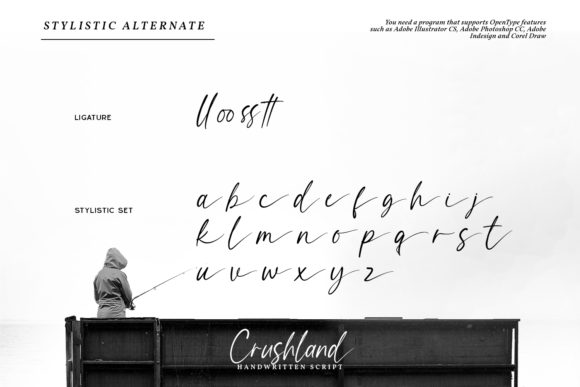 STYLISTIC ALTERNATE
You need a program that supports OpenType features
such as Adobe Illustrator CS, Adobe Photoshop CC, Adobe
Indesign and Corel Draw
LIGATURE
ll oo ss tt
STYLISTIC SET
a b c d e f g h i j
k l m n o p q r s t
u v w x y z
Crushland
HANDWRITTEN SCRIPT